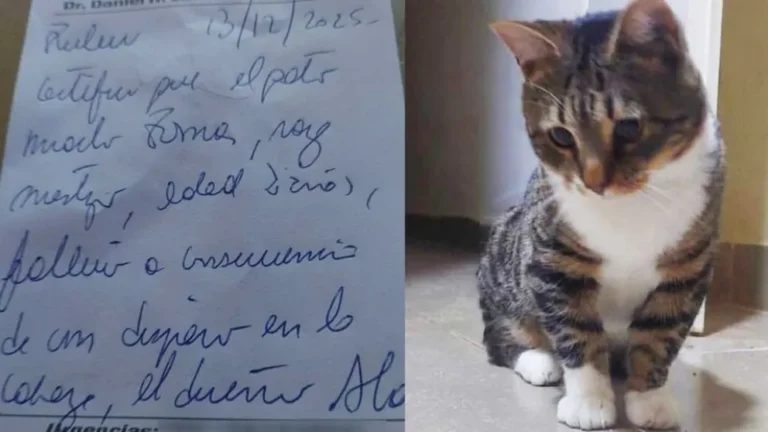 Dr. Daniel
13/12/2025
Certifico que el gato
macho Tomas, raza
mestizo, edad 2 años,
falleció a consecuencia
de un disparo en la
cabeza, el dueño
Urgencias: